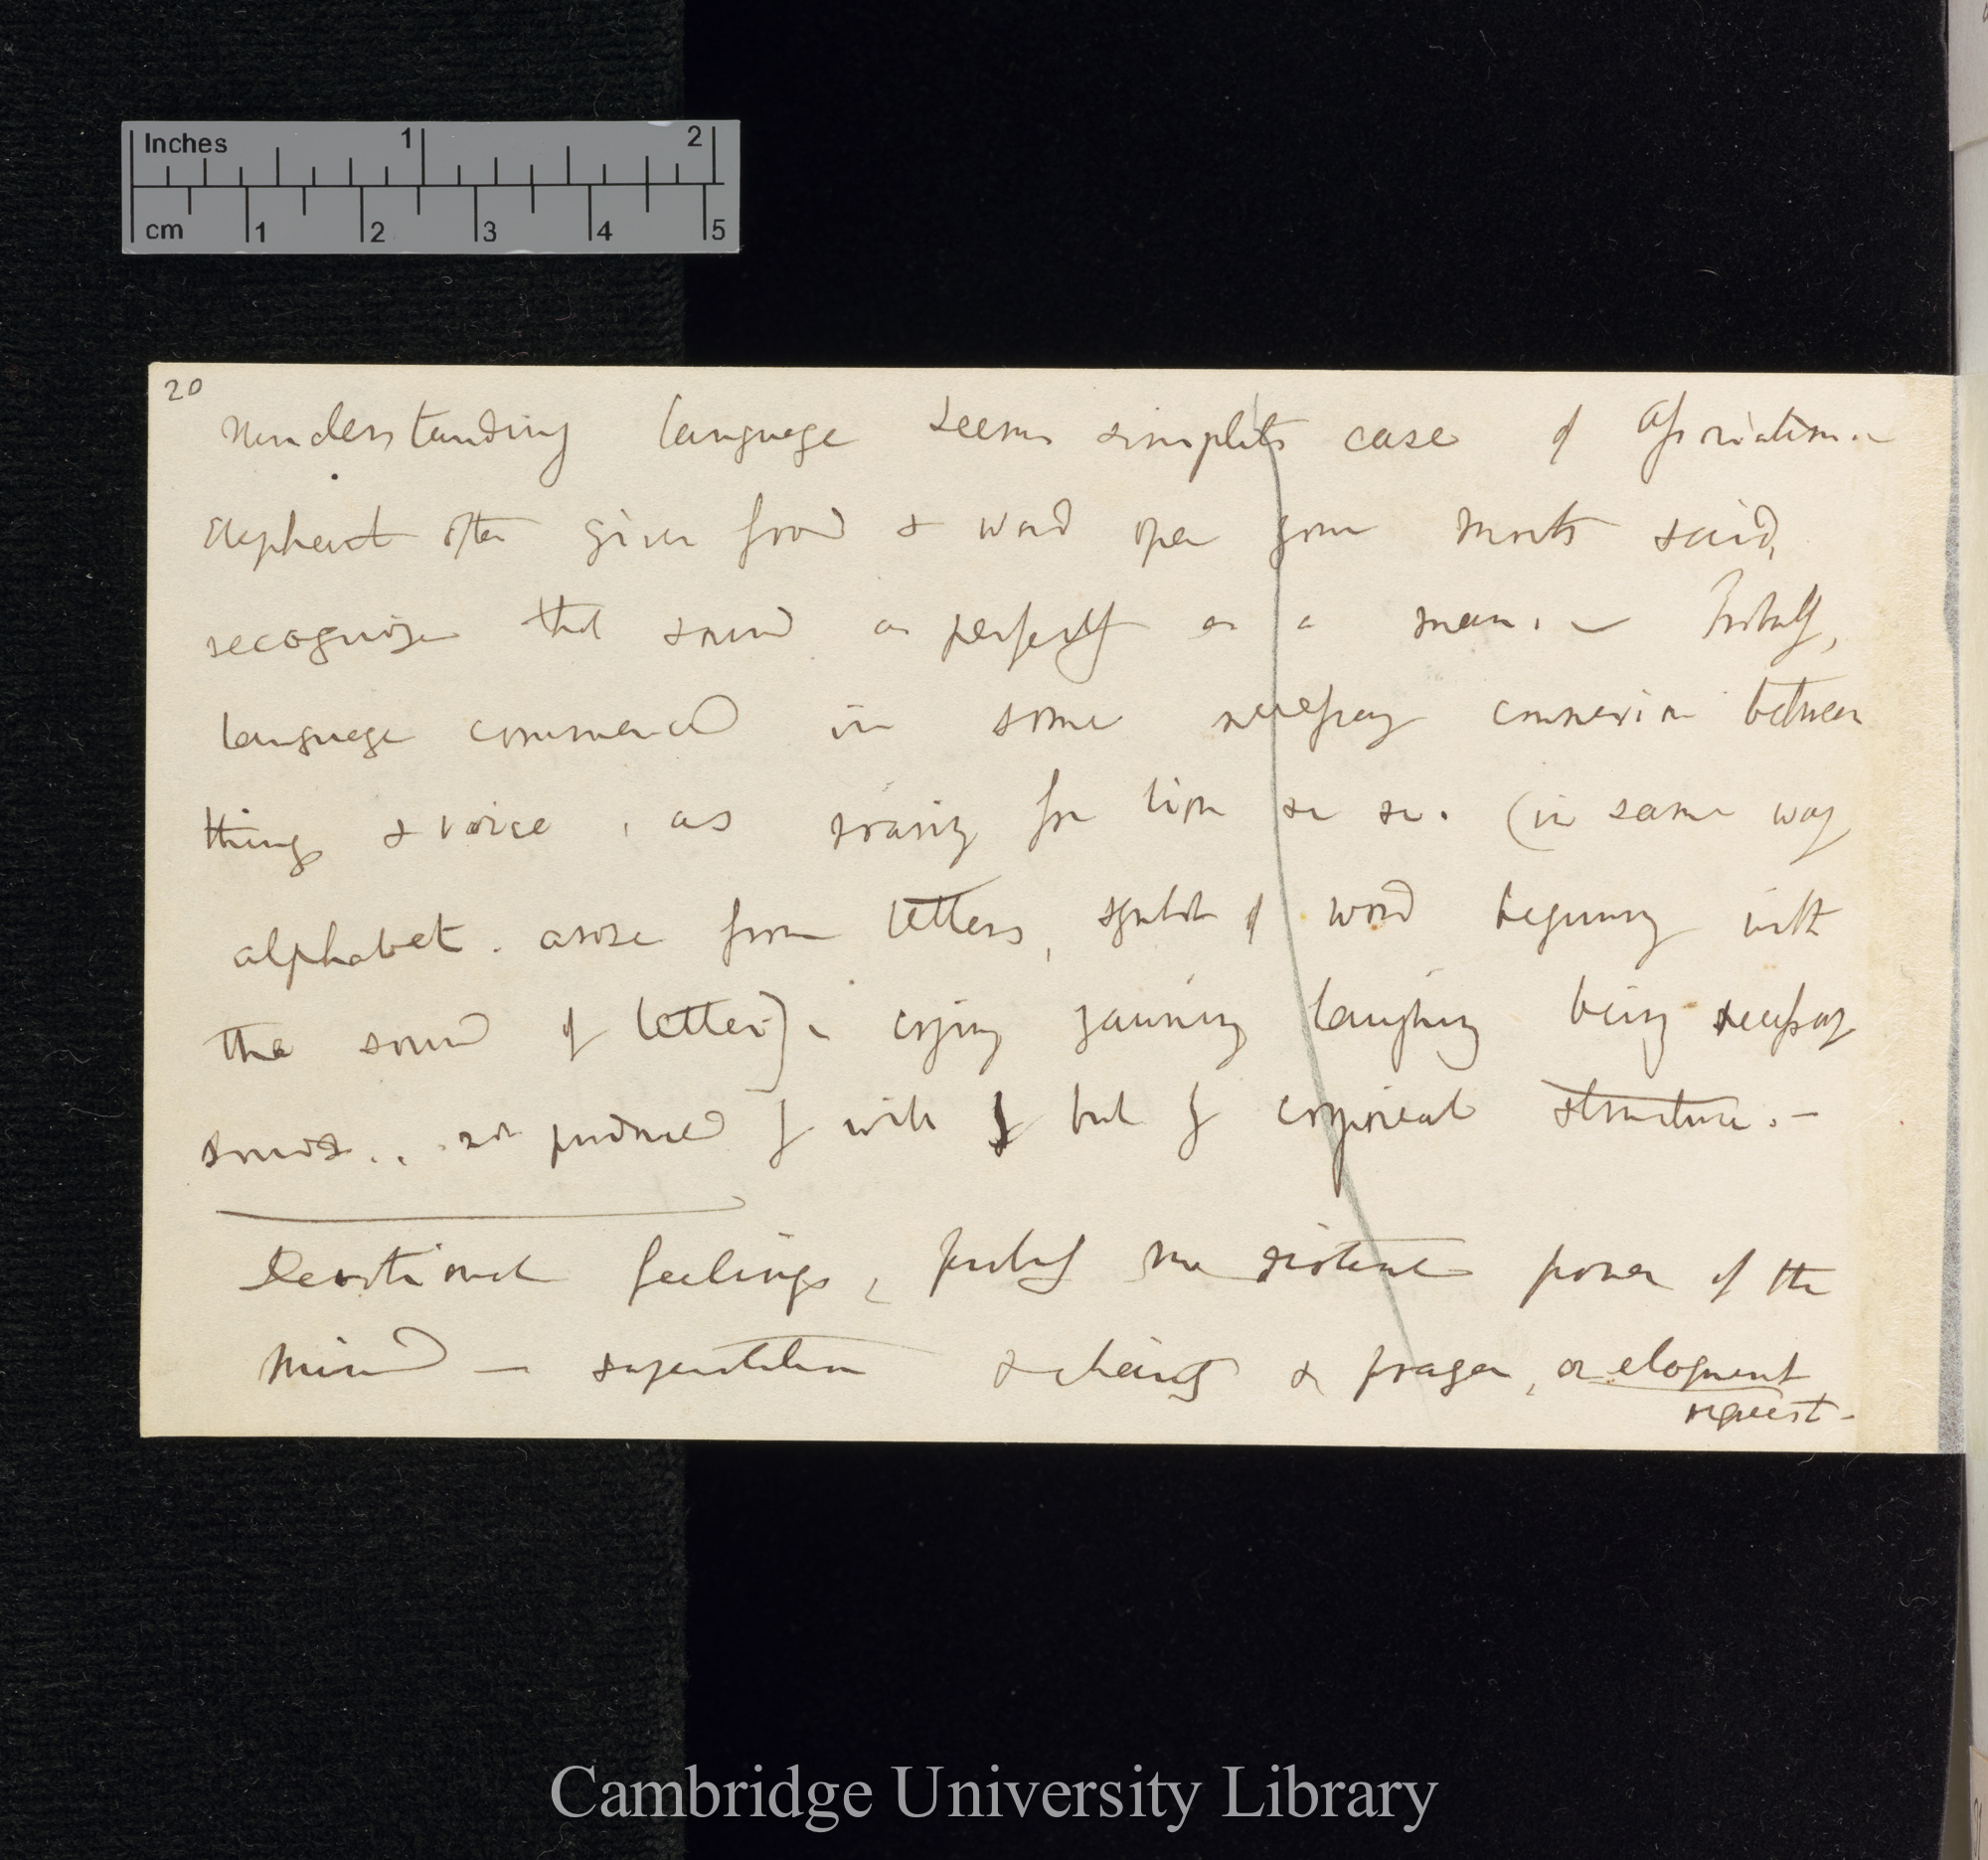 Inches 1 2
cm 1 2 3 4 5
20
Understanding language seems simplest case of Association.—
Elephant often given food & word open your mouth said,
recognises that sound as perfectly as a man. — Probably,
language commenced in some necessary connexion between
things & voice, as roaring for lion &c &c. (in same way
alphabet arose from letters, symbols of word beginning with
the sound of letter) — crying yawning laughing being necessary
sounds... not produced by will but by corporeal structure. —
Devotional feelings, probably no distinct power of the
mind — superstition & charity & prayer, or eloquent
request —
Cambridge University Library